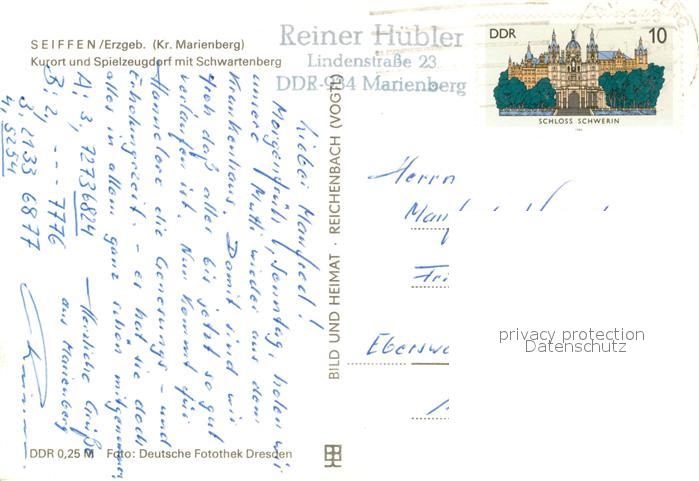 SEIFFEN/Erzgeb. (Kr. Marienberg)
Kurort und Spielzeugdorf mit Schwartenberg
Reiner Hübler
Lindenstraße 23
DDR-934 Marienberg
DDR 10
SCHLOSS SCHWERIN
Lieber Manfred!
Morgen früh, Sonntag, holen wir
unsere Mutti wieder aus dem
Krankenhaus. Damit sind wir
froh daß alles bis jetzt so gut
verlaufen ist. Nun kommt für
Hannelore die Genesungs- und
Erholungszeit - es hat sie doch
alles in allem ganz schön mitgenommen
A: 3, 72736824
B: 2, --- 7776
3, 2133 6877
4, 5254
Herzliche Grüße
aus Marienberg
BILD UND HEIMAT · REICHENBACH (VOGTL)
Herrn
Eberswa
privacy protection
Datenschutz
DDR 0,25 M Foto: Deutsche Fotothek Dresden